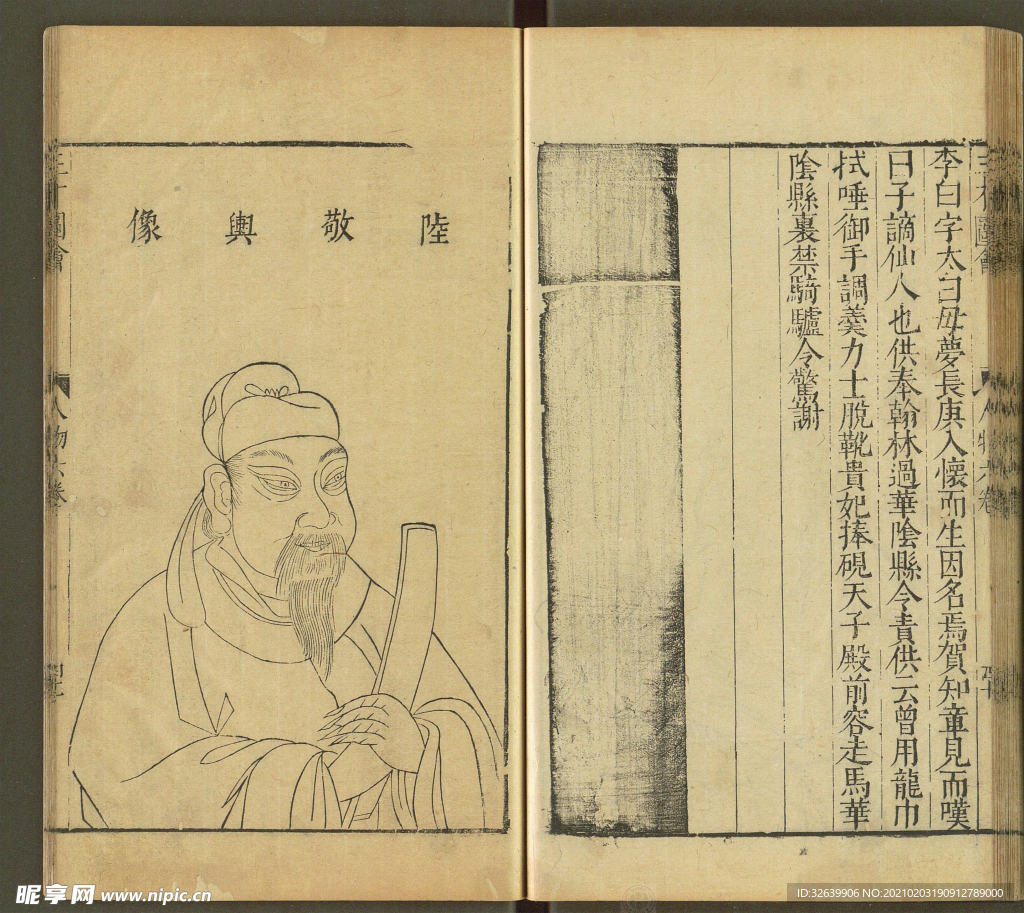 李白字太白母夢長庚入懷而生因名焉賀知章見而嘆
曰子謫仙人也供奉翰林過華陰縣令責供云曾用龍巾
拭唾御手調羹力士脫靴貴妃捧硯天子殿前容走馬華
陰縣裏禁騎驢令驚謝
陸敬輿像
人物六卷
昵享网 www.nipic.cn
ID:32639906 NO:20210203190912789000